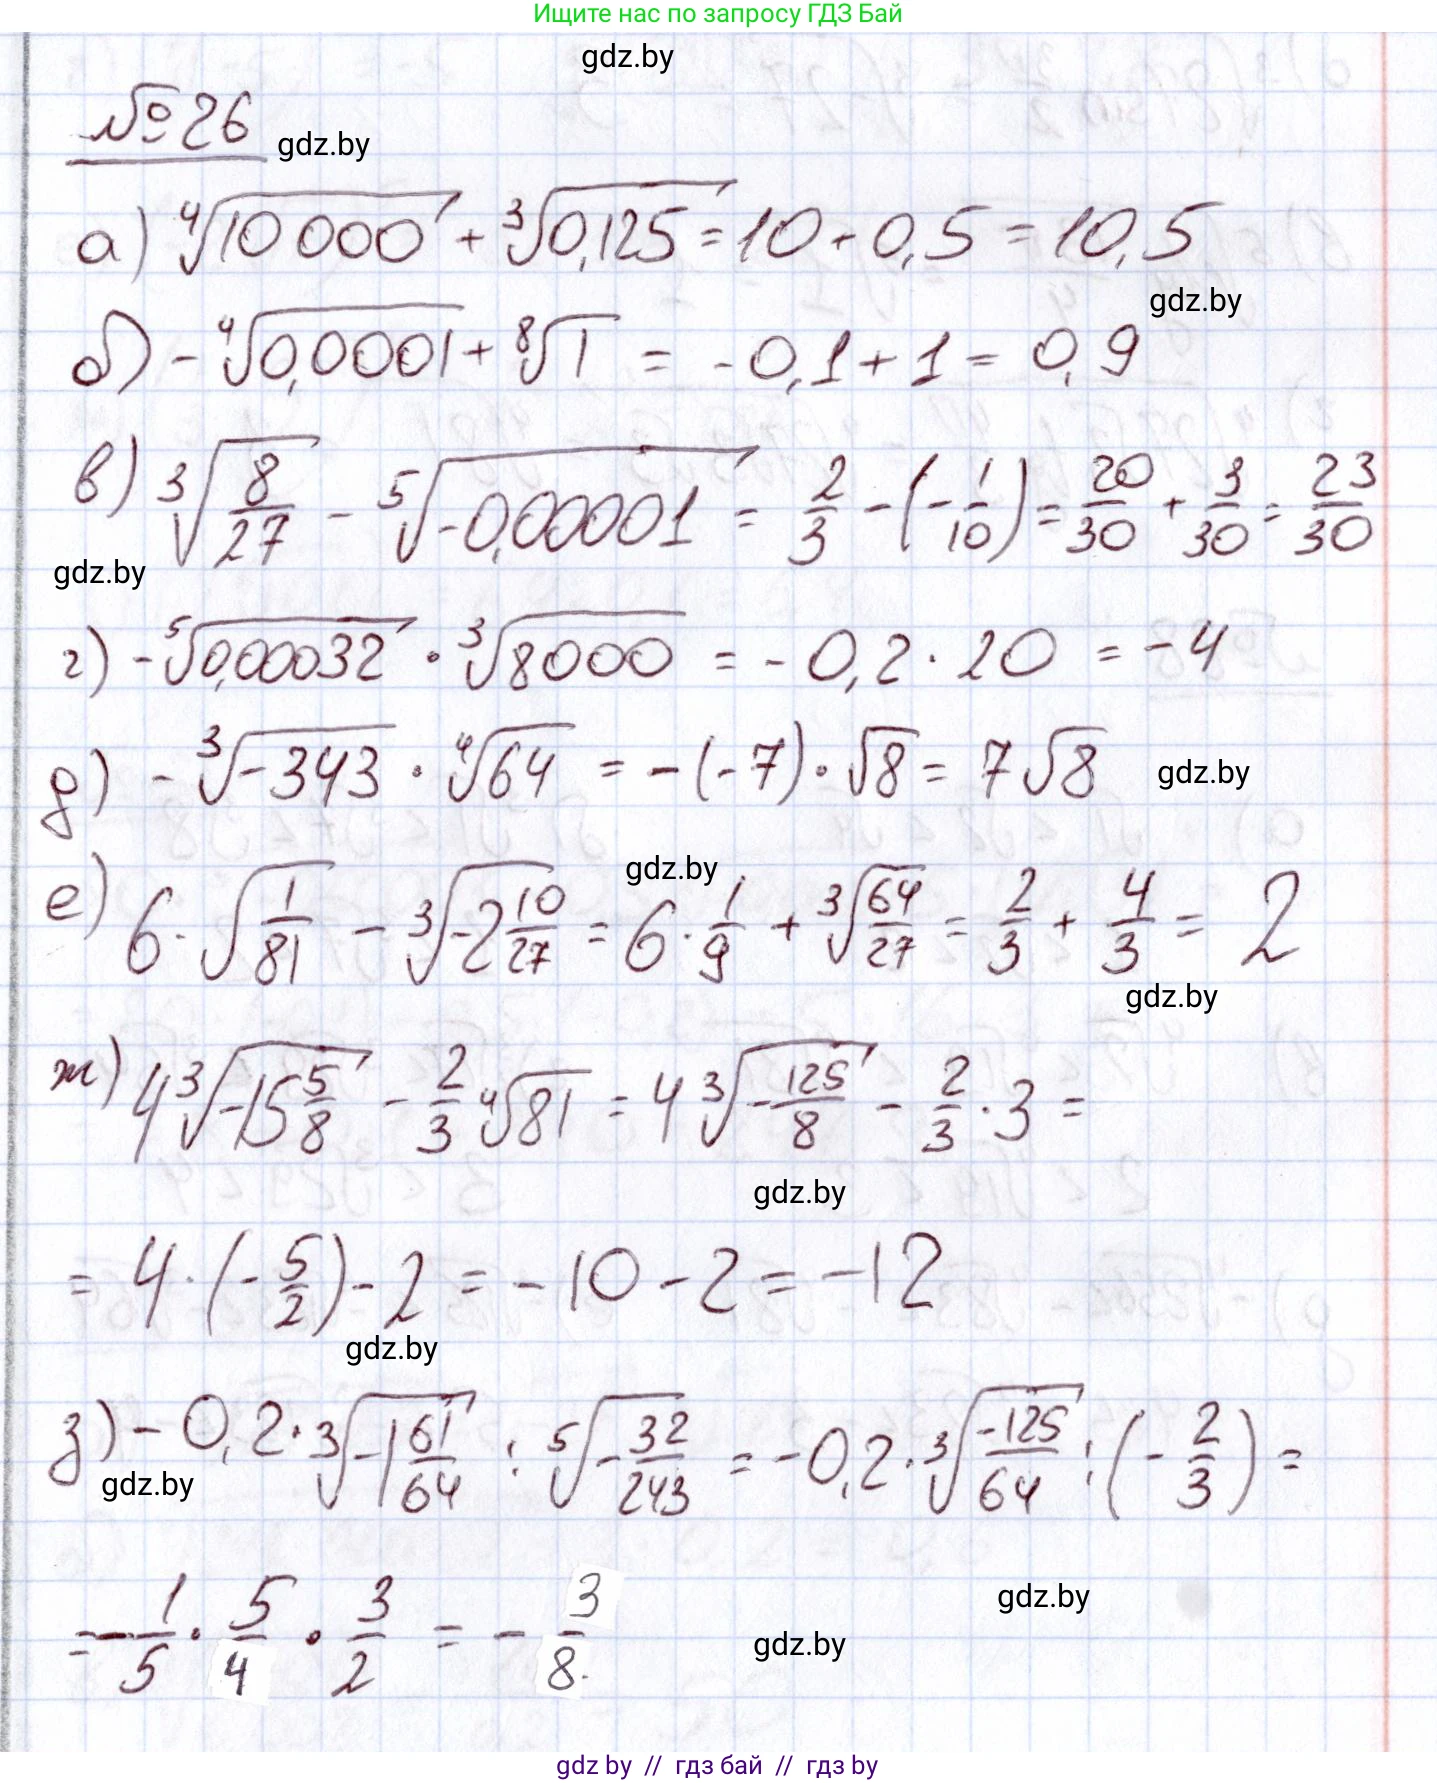 Ищите нас по запросу ГДЗ Бай
gdz.by
№26
gdz.by
а) ⁴√10 000 + ³√0,125 = 10 + 0,5 = 10,5
gdz.by
б) -⁴√0,0001 + ⁸√1 = -0,1 + 1 = 0,9
в) ³√(8/27) - ⁵√(-0,00001) = 2/3 - (-1/10) = 20/30 + 3/30 = 23/30
gdz.by
г) -⁵√0,00032 · ³√8000 = -0,2 · 20 = -4
д) -³√(-343) · ⁴√64 = -(-7) · √8 = 7√8
gdz.by
gdz.by
е) 6 · √(1/81) - ³√(-2 10/27) = 6 · 1/9 + ³√(64/27) = 2/3 + 4/3 = 2
gdz.by
ж) 4 ³√(-15 5/8) - 2/3 ⁴√81 = 4 ³√(-125/8) - 2/3 · 3 =
gdz.by
= 4 · (-5/2) - 2 = -10 - 2 = -12
gdz.by
з) -0,2 · ³√(-1 61/64) : ⁵√(-32/243) = -0,2 · ³√(-125/64) : (-2/3) =
gdz.by
= -1/5 · 5/4 · 3/2 = -3/8.
gdz.by
gdz.by
gdz by // гдз бай // гдз by